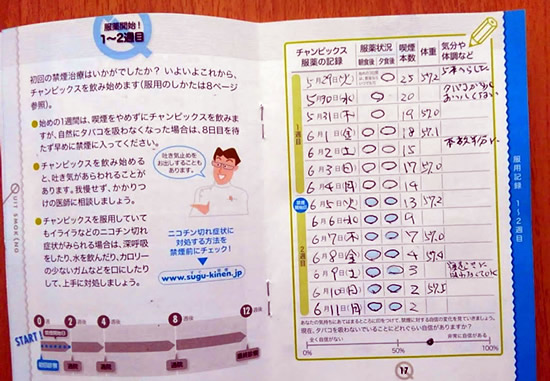 服薬開始!
1~2週目
初回の禁煙治療はいかがでしたか? いよいよこれから、
チャンピックスを飲み始めます(服用のしかたは8ページ
参照)。
始めの1週間は、喫煙をやめずにチャンピックスを飲み
ますが、自然にタバコを吸わなくなった場合は、8日目を待
たず早めに禁煙に入ってください。
チャンピックスを飲み始め
ると、吐き気があらわれること
があります。我慢せず、かかりつ
けの医師に相談しましょう。
吐き気止めを
お出しすることも
あります。
チャンピックスを服用していて
もイライラなどのニコチン切れ
症状がみられる場合は、深呼吸
をしたり、水を飲んだり、カロリー
の少ないガムなどを口にしたり
して、上手に対処しましょう。
ニコチン切れ症状に
対処する方法を
禁煙前にチェック!
www.sugu-kinen.jp
QUIT SMOKING
START!
0週
2週後
4週後
8週後
12週後
禁煙開始日
初回診療
通院
通院
通院
最終診療
チャンピックス
服薬の記録
服薬状況
朝食後 夕食後
喫煙
本数
体重
気分や
体調など
1週目
5月29日(火) 25 57.2
5月30日(水) 20
5月31日(木) 19 57.0
6月1日(金) 18 57.1
6月2日(土) 15
6月3日(日) 17 57.0
6月4日(月) 14
禁煙開始日
2週目
6月5日(火) 13 57.2
6月6日(水) 9
6月7日(木) 7 57.0
6月8日(金) 4 57.4
6月9日(土) 3
6月10日(日) 2 57.5
6月11日(月) 2
あなたの気持ちにあてはまるところに印をつけて、禁煙に対する自信の変化を見ていきましょう。
現在、タバコを吸わないでいることにどれぐらい自信がありますか?
全く自信がない
非常に自信がある
0%
50%
100%
服用記録 1~2週目
17